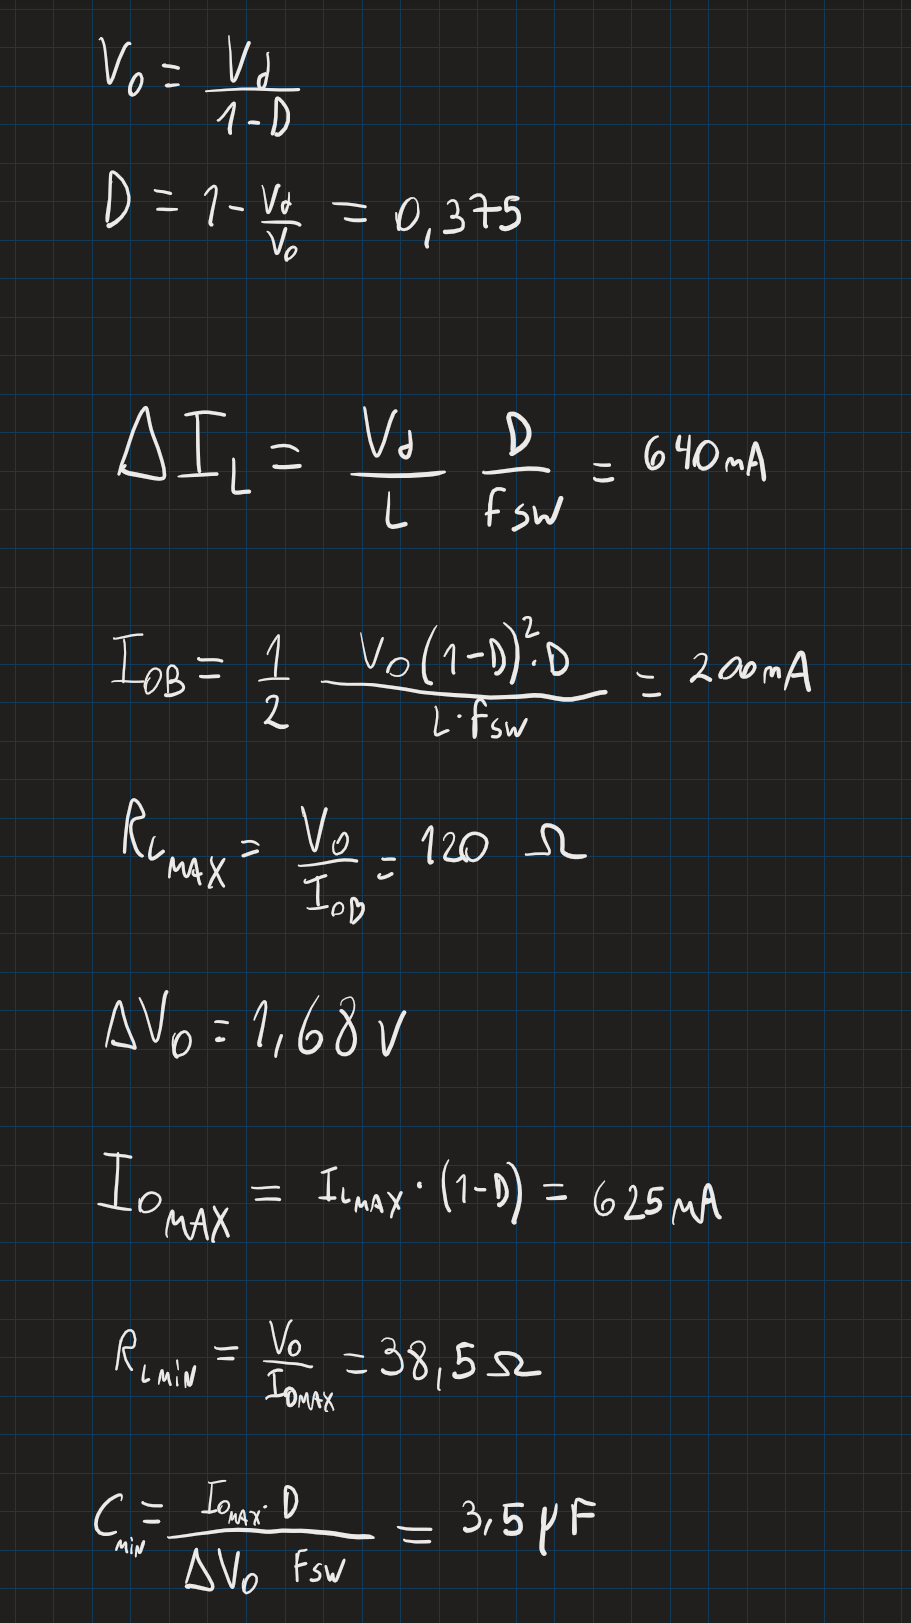 V₀ = V_d / (1-D)
D = 1 - V_d / V₀ = 0,375
ΔI_L = V_d / L D / f_sw = 640 mA
I_OB = 1/2 V_O (1-D)² · D / L · f_sw = 200 mA
R_L_MAX = V_O / I_OB = 120 Ω
ΔV_O = 1,68 V
I_O_MAX = I_L_MAX · (1-D) = 625 mA
R_L MIN = V_O / I_OMAX = 38,5 Ω
C_MIN = I_O_MAX · D / ΔV_O F_SW = 3,5 μF